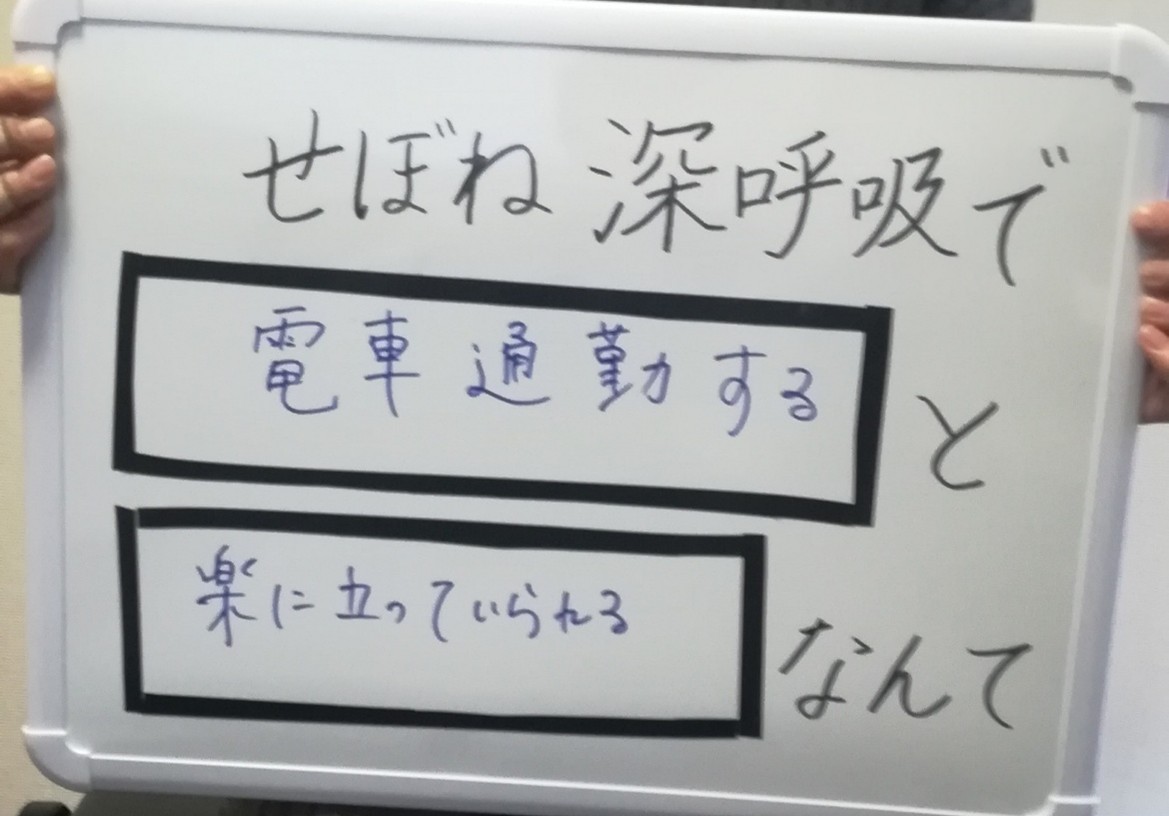 せぼね 深呼吸で
電車通勤すると
楽に立っていられるなんて